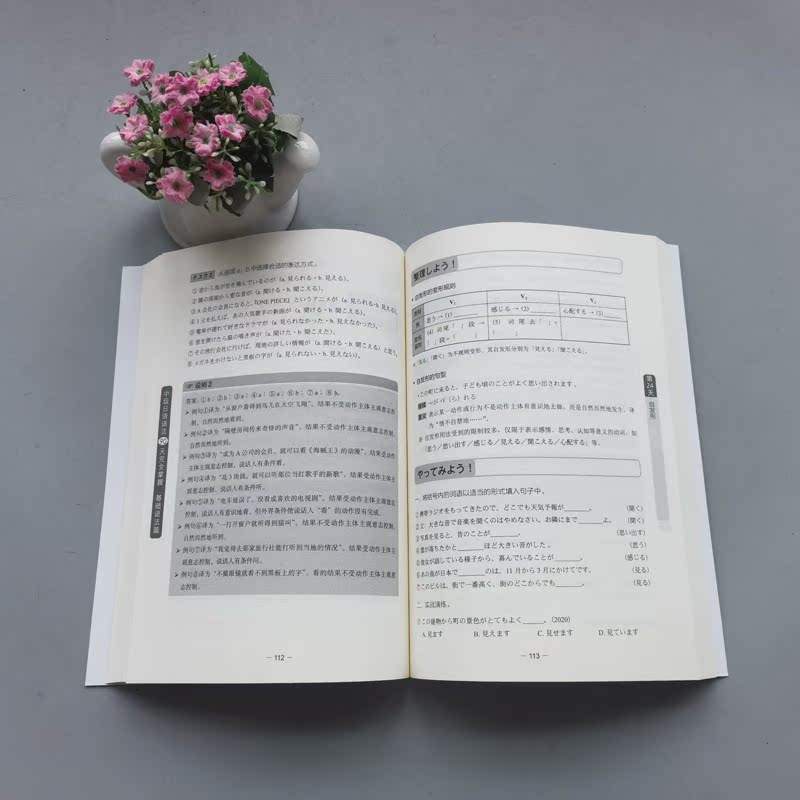 从括弧 a、b 中选择合适的表达方式。
① 窓から鳥が空を飛んでいるのが（a. 見られる・b. 見える）。
② 隣の部屋から変な音が（a. 聞ける・b. 聞こえる）。
③ A 会社の会員になると、『ONE PIECE』というアニメが（a. 見られる・b. 見える）。
④ 3 元を払えば、あの人気歌手の新曲が（a. 聞ける・b. 聞こえる）。
⑤ 電車が遅れて好きなドラマが（a. 見られなかった・b. 見えなかった）。
⑥ 窓を開けたら猫の鳴き声が（a. 聞けた・b. 聞こえた）。
⑦ その旅行会社に行けば、現地の詳しい情報が（a. 聞ける・b. 聞こえる）と思う。
⑧ メガネをかけないと黒板の字が（a. 見られない・b. 見えない）。
说明2
答案：①b；②b；③a；④a；⑤a；⑥b；⑦a；⑧b。
例句①译为“从窗户看得到鸟儿在天空飞翔”，结果不受动作主体主观意志
控制，自然而然地看到。
例句②译为“隔壁房间传来奇怪的声音”，结果不受动作主体主观意志控制，
自然而然地听到。
例句③译为“成为 A 公司的会员，就可以看《海贼王》的动漫”，结果受动
作主体主观意志控制，说话人有条件看。
例句④译为“花3块钱，就可以听那位当红歌手的新歌”，结果受动作主体主
观意志控制，说话人有条件听。
例句⑤译为“电车延误了，没看成喜欢的电视剧”，结果受动作主体主观意志
控制，说话人有意识地看，但外界条件使说话人“看”的动作没有完成。
例句⑥译为“一打开窗户就听得到猫叫”，结果不受动作主体主观意志控制，
自然而然地听到。
例句⑦译为“我觉得去那家旅行社能打听到当地的情况”，结果受动作主体主
观意志控制，说话人有条件问。
例句⑧译为“不戴眼镜就看不到黑板上的字”，看的结果不受动作主体主观意
志控制。
中级日语语法
天完全掌握
基础语法篇
— 112 —
整理しよう！
自发形的变形规则
V₁ V₂ V₃
思う → (1) 感じる → (2) 心配する → (3)
(4) 词尾「 」段 → 「 」段 + 「 」 (5) 词尾去「 」，
「見る」「聞く」为不规则变形，其自发形分别为「見える」「聞こえる」
自发形的句型
この町に来ると、子ども頃のことがよく思い出されます。
～が V (ら) れる
表示某一动作或行为不是动作主体有意识地去做，而是自然而然地发生，译
为“情不自禁地……”。
自发形用法受到的限制较多，仅限于表示感情、思考、认知等意义的动词，如
「思う／思い出す／感じる／見える／聞こえる／心配する」等。
第24天
自发形
やってみよう！
一、将括号内的词语以适当的形式填入句子中。
① 携帯ラジオをもってきたので、どこでも天気予報が______。 （聞く）
② 父：大きな音で音楽を聞くのはやめなさい。お隣にまで______よ。 （聞く）
③ 写真を見ると、昔のことが______。 （思い出す）
④ 雷が落ちたかと______ほど大きい音がした。 （思う）
⑤ 彼女が話している様子から、喜んでいることが______。 （感じる）
⑥ あの鳥が日本で______のは、11 月から 3 月にかけてです。 （見る）
⑦ このビルは、街で一番高く、街のどこからでも______。 （見る）
二、实战演练。
① この建物から町の景色がとてもよく______。（2020）
A. 見ます B. 見えます C. 見せます D. 見ています
— 113 —